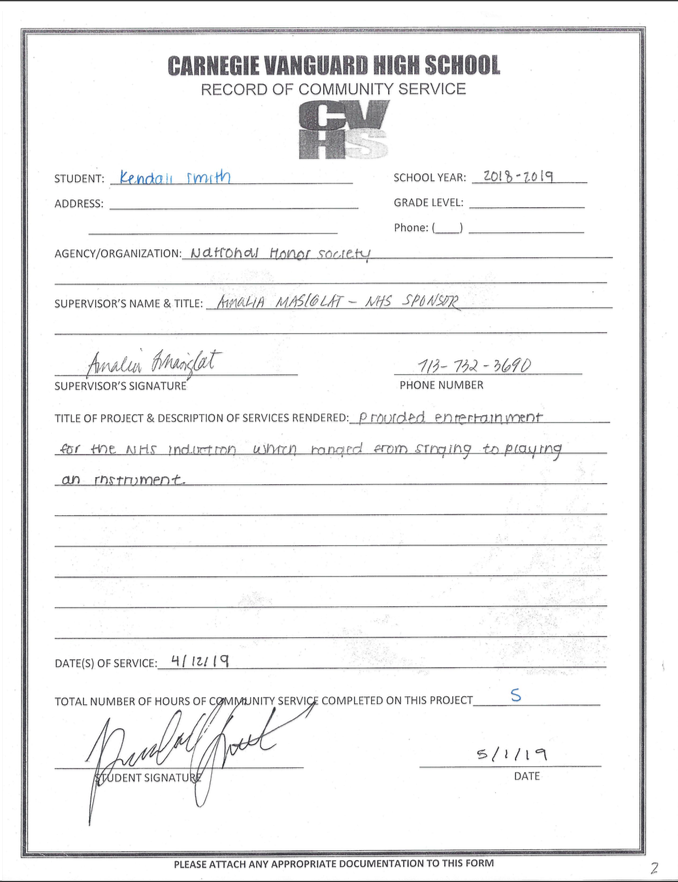 CARNEGIE VANGUARD HIGH SCHOOL
RECORD OF COMMUNITY SERVICE
CV
HS
STUDENT: Kendall Smith SCHOOL YEAR: 2018-2019
ADDRESS: GRADE LEVEL:
Phone: ( )
AGENCY/ORGANIZATION: National Honor Society
SUPERVISOR'S NAME & TITLE: AMALIA MASIGLAT - NHS SPONSOR
Amalia Masiglat 713-732-3690
SUPERVISOR'S SIGNATURE PHONE NUMBER
TITLE OF PROJECT & DESCRIPTION OF SERVICES RENDERED: Provided entertainment
for the NHS induction which ranged from singing to playing
an instrument.
DATE(S) OF SERVICE: 4/12/19
TOTAL NUMBER OF HOURS OF COMMUNITY SERVICE COMPLETED ON THIS PROJECT 5
5/1/19
STUDENT SIGNATURE DATE
PLEASE ATTACH ANY APPROPRIATE DOCUMENTATION TO THIS FORM
2